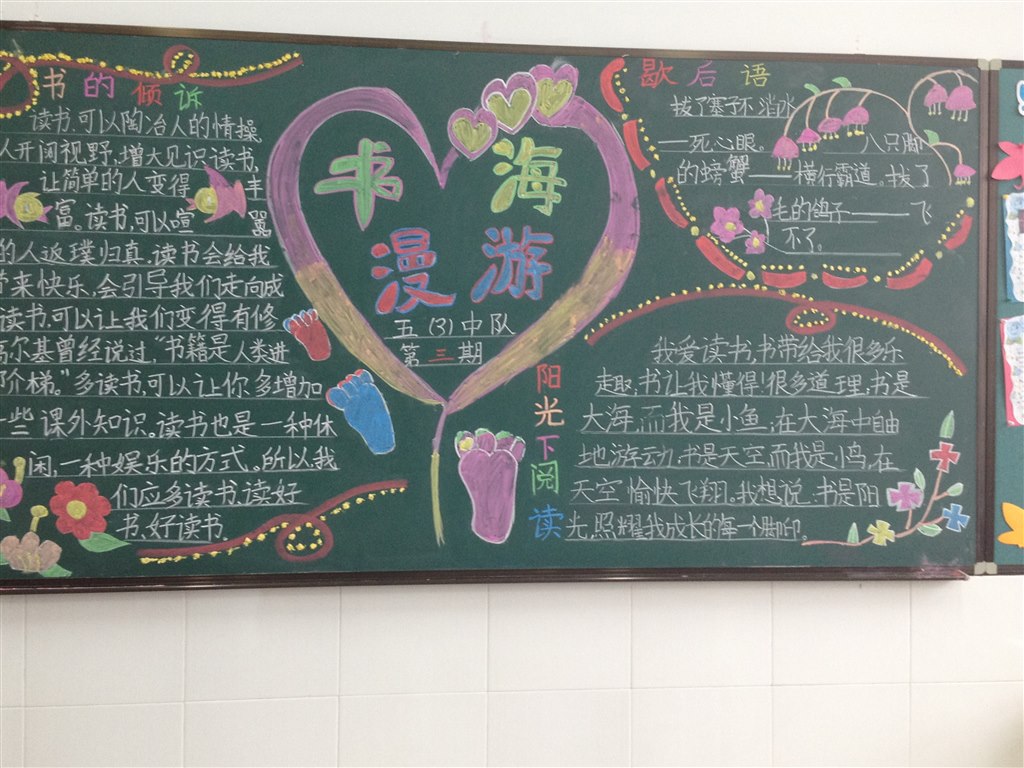 书的倾诉
读书,可以陶冶人的情操
人开阔视野,增大见识读书,
让简单的人变得 丰
富。读书,可以喧 嚣
的人返璞归真,读书会给我
带来快乐,会引导我们走向成
读书,可以让我们变得有修
高尔基曾经说过“书籍是人类进
阶梯。”多读书,可以让你多增加
一些课外知识。读书也是一种休
闲,一种娱乐的方式。所以,我
们应多读书,读好
书,好读书。
书海
漫游
五(3)中队
第三期
歇后语
拔了塞子不淌水
——死心眼。 八只脚
的螃蟹——横行霸道。拔了
毛的鸽子——飞
不了。
阳光下阅读
我爱读书,书带给我很多乐
趣,书让我懂得很多道理,书是
大海,而我是小鱼,在大海中自由
地游动,书是天空而我是小鸟,在
天空愉快飞翔。我想说,书是阳
光,照耀我成长的每一个脚印。